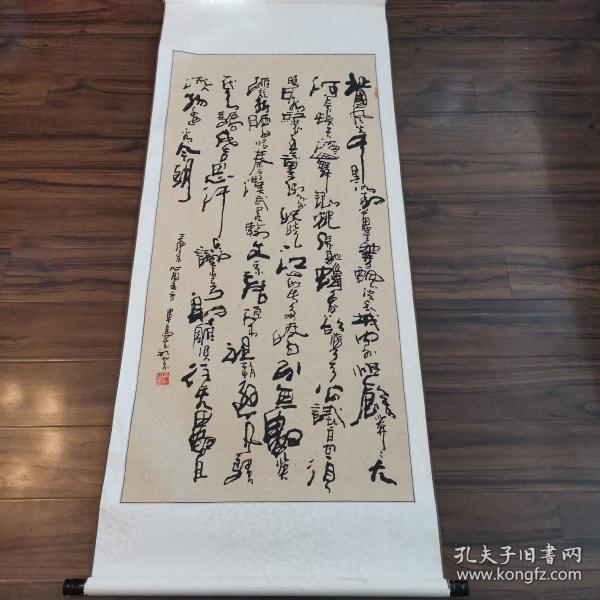 北国风光千里冰封万里雪飘望长城内外惟余莽莽大
河上下顿失滔滔山舞银蛇原驰蜡象欲与天公试比高须
晴日看红装素裹分外妖娆江山如此多娇引无数英
雄竞折腰惜秦皇汉武略输文采唐宗宋祖稍逊风骚
一代天骄成吉思汗只识弯弓射大雕俱往矣数风
流人物还看今朝
孔夫子旧书网
www.kongfz.com